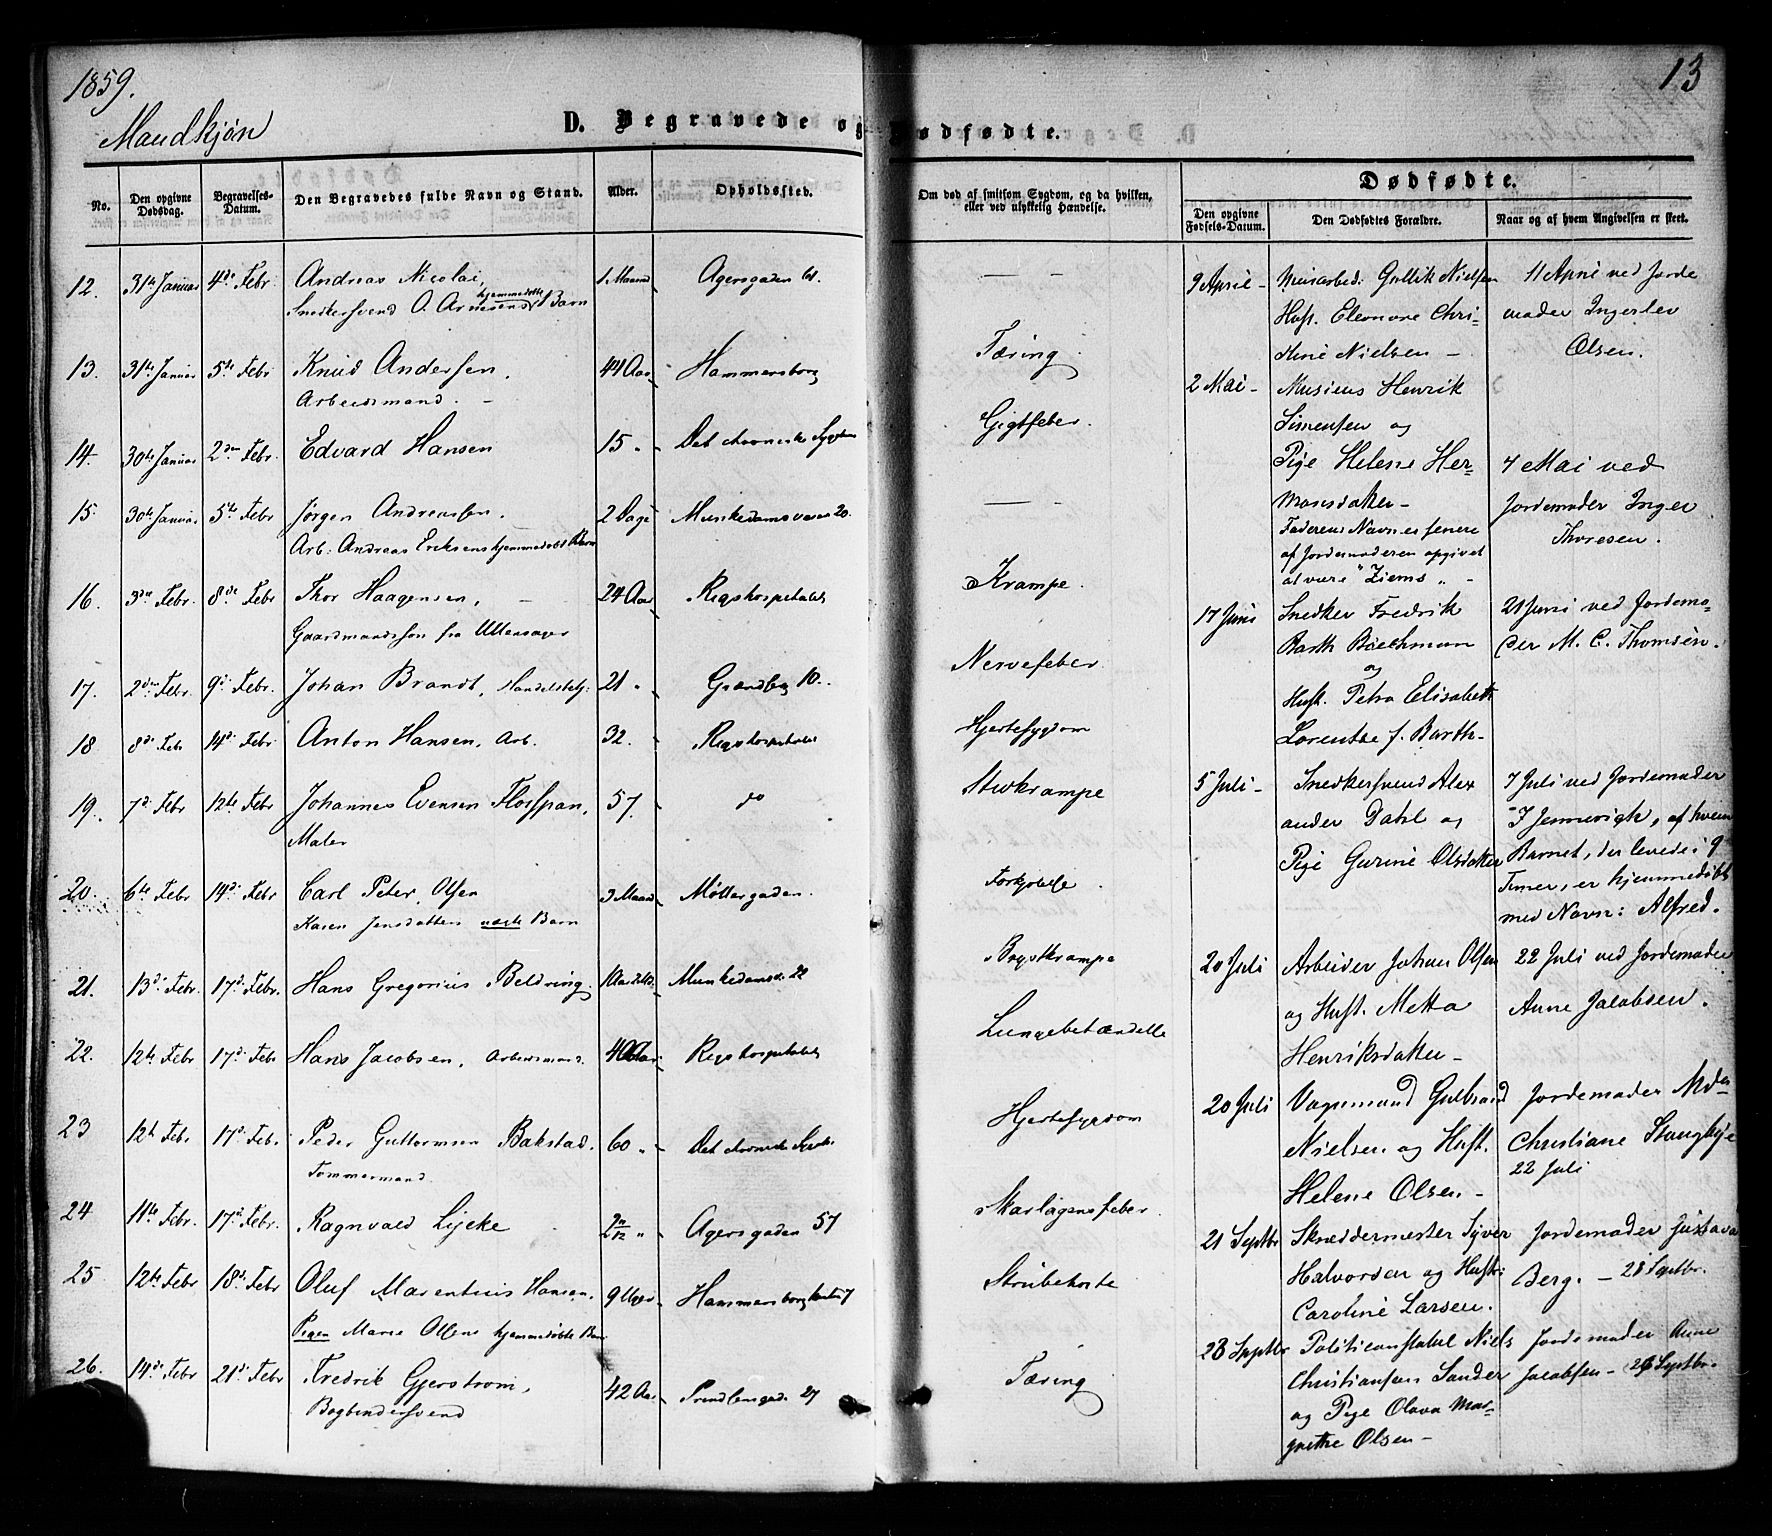 1859.
13
Mandkjøn
D. Begravede og Dødfødte.
No.
Den opgivne Dødsdag.
Begravelses-Datum.
Den Begravedes fulde Navn og Stand.
Alder.
Opholdssted.
Om død af smitsom Sygdom, og da hvilken,
eller ved ulykkelig Hændelse.
Dødfødte.
Den opgivne Fødsels-Datum.
Den Dødfødtes Forældre.
Naar og af hvem Angivelsen er skeet.
12. 31te Januar 4de Febr Andreas Nicolai, 1 Maaned Agersgaden 61. — —
Snedkersvend O. Arnesens hjemmedøbte Barn
13. 31te Januar 5te Febr Knud Andersen, 44 Aar Hammersborg Tæring.
Arbeidsmand. —
14. 30te Januar 2den Febr. Edvard Hansen 15 „ Det chroniske Gigtfeber.
15. 30te Januar 5te Febr Jørgen Andreassen. 2 Dage Munkedamsveien 20. — —
Arb: Andreas Eriksens hjemmedøbt Barn
16. 3die Febr. 8de Febr Thor Haagensen, 24 Aar Rigshospitalet Krampe.
Gaardmandssøn fra Ullensager
17. 2den Febr. 9de Febr. Johan Brandt, Handelsbetj: 21 „ Grændsg 10. Nervefeber.
18 8de Febr 14de Febr Anton Hansen, Arb. 32. Rigshospitalet Hjertesygdom
19. 7de Febr 12te Febr Johannes Evensen Flosspan, 57. do Stivkrampe
Maler
20. 6te Febr 14de Febr Carl Peter Olsen 3 Maand Møllergaden. Forkjølelse.
Karen Jensdatters uægte Barn
21. 13de Febr. 17de Febr. Hans Gregorius Beldring. 1 Aar Munkedamsv 22 Brystkrampe
22. 12te Febr 17de Febr Hans Jacobsen, Arbeidsmand. 40 Aar Rigshospitalet Lungebetændelse
23 12te Febr 17de Febr. Peder Guttormsen Bakstad. 60 „ Det chroniske Hjertesygdom
Tømmermand
24 11te Febr. 17de Febr. Ragnvald Lycke 2 11/12 „ Agersgaden 57 Skarlagensfeber.
25 12te Febr 18de Febr Oluf Marentius Hansen. 9 Uger Hammersborg 7 Strubehoste
Pigen Marie Olsens hjemmedøbte Barn
26. 14de Febr 21de Febr Fredrik Gjerstrom, 42 Aar Prindsensgade 27 Tæring
Bogbindersvend
9 April – Murarbeid: Gullik Nielsen 11 April ved Jorde
Hust. Eleonore Chri- moder Ingerlev
stine Nielsen – Olsen.
2 Mai – Musicus Henrik
Simensen og
Pige Helene Her- 4 Mai ved
mansdatter – Jordemoder Inger
Faderens Navn er senere Thoresen.
af Jordemoderen opgivet
at være "Ziems" –
17 Juni Snedker Fredrik 21 Juni ved Jordemo-
Barth Boeckmann der M. C. Thomsen.
og
Hust. Petra Elisabeth
Lorentse f. Barth –
5 Juli – Snedkersvend Alex 7 Juli ved Jordemoder
ander Dahl og J. Jennevigk, af hvem
Pige Gurine Olsdatter Barnet, der levede i 9
Timer, er hjemmedøbt
med Navn: Alfred.
20 Juli Arbeider Johan Olsen 22 Juli ved Jordemoder
og Hust. Metta Anne Jacobsen.
Henriksdatter –
20 Juli Vognmand Gulbrand Jordemoder
Nielsen og Hust. Christiane
Helene Olsen – 22 Juli
21 Septbr Skræddermester Syver Jordemoder Gustava
Halvorsen og Hustr: Berg. – 28 Septbr.
Caroline Larsen.
23 Septbr Politiconstabel Niels Jordemoder Anne
Christiansen Sander Jacobsen – 26 Septbr.
og Pige Olava Mar-
grethe Olsen –